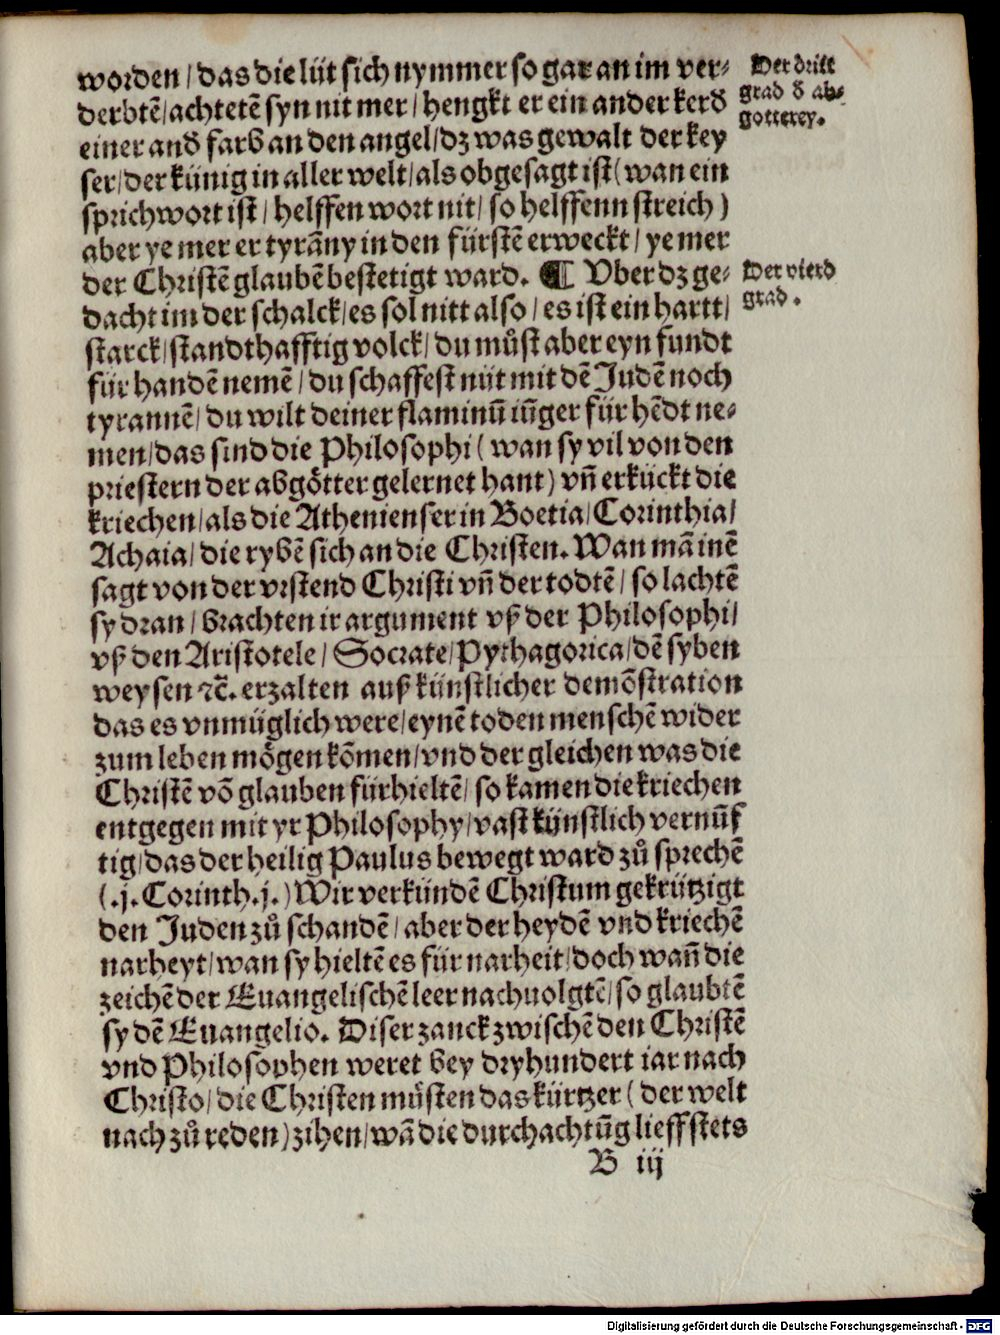 worden / das die lüt sich nymmer so gar an im ver⸗
derbtē / achtetē syn nit mer / hengkt er ein ander kerd̕
einer and̕ farb an den angel / dz was gewalt der key
ser / der künig in aller welt / als obgesagt ist ( wan ein
sprichwort ist / helffen wort nit / so helffenn streich )
aber ye mer er tyrāny in den fürstē erweckt / ye mer
der Christē glaubē bestetigt ward. ¶ Vber dz ge⸗
dacht im der schalck / es sol nitt also / es ist ein hartt /
starck / standthafftig volck / du můst aber eyn fundt
für handē nemē / du schaffest nüt mit dē Judē noch
tyrannē / du wilt deiner flaminū iūger für hēdt ne⸗
men / das sind die Philosophi ( wan sy vil von den
priestern der abgötter gelernet hant ) vn̄ erkückt die
kriechen / als die Athenienser in Boetia / Corinthia /
Achaia / die rybē sich an die Christen. Wan mā inē
sagt von der vrstend Christi vn̄ der todtē / so lachtē
sy dran / brachten ir argument vß der Philosophi /
vß den Aristotele / Socrate / Pythagorica / dē syben
weysen ⁊c̄. erzalten auß künstlicher demōstration
das es vnmüglich were / eynē toden menschē wider
zum leben mögen kōmen / vnd der gleichen was die
Christē vō glauben fürhieltē / so kamen die kriechen
entgegen mit yr Philosophy / vast künstlich vernūf
tig / das der heilig Paulus bewegt ward zů sprechē
( .j. Corinth. j. ) Wir verkündē Christum gekrützigt
den Juden zů schandē / aber der heydē vnd kriechē
narheyt / wan sy hieltē es für narheit / doch wan̄ die
zeichē der Euangelischē leer nachuolgtē / so glaubtē
sy dē Euangelio. Diser zanck zwischē den Christē
vnd Philosophen weret bey dryhundert iar nach
Christo / die Christen můsten das kürtzer ( der welt
nach zů reden ) zihen / wā die durchachtūg lieff stets
B iij
Der dritt
grad d̕ ab⸗
gotterey.
Der vierd
grad.
Digitalisierung gefördert durch die Deutsche Forschungsgemeinschaft - DFG